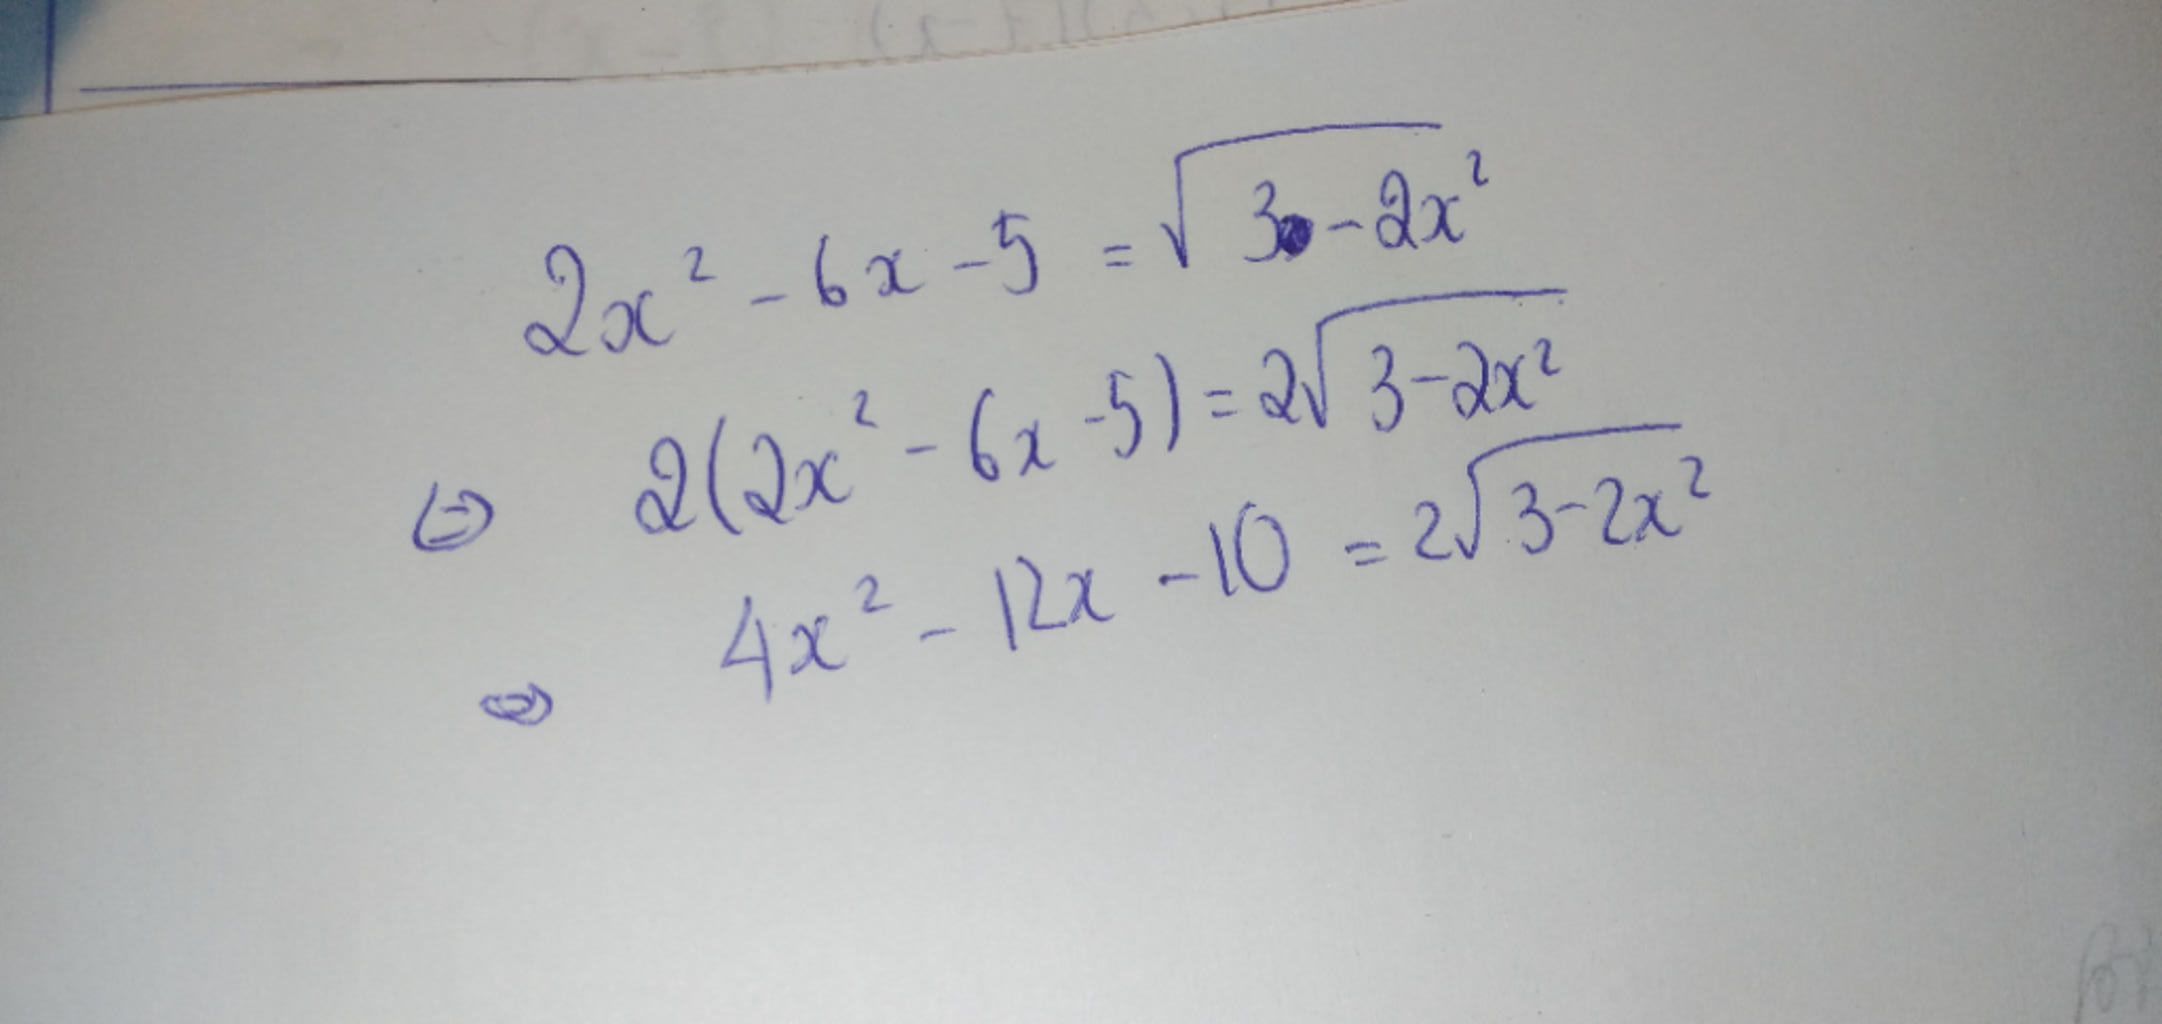 2x² - 6x - 5 = √(3 - 2x²)
⇔ 2(2x² - 6x - 5) = 2√(3 - 2x²)
⇔ 4x² - 12x - 10 = 2√(3 - 2x²)